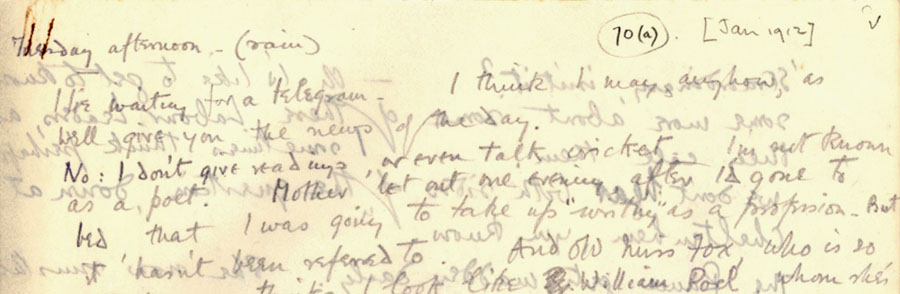 70(a). [Jan 1912]
Tuesday afternoon - (rain)
I'm waiting for a telegram. I think I may, anyhow, as
well give you the news of the day.
No: I don't give readings, or even talk cricket. I'm not known
as a poet. Mother let out one evening after I'd gone to
bed that I was going to take up "writing" as a profession. But
it hasn't been referred to. And old Miss Fox, who is so
I look like William Poel, whom she's